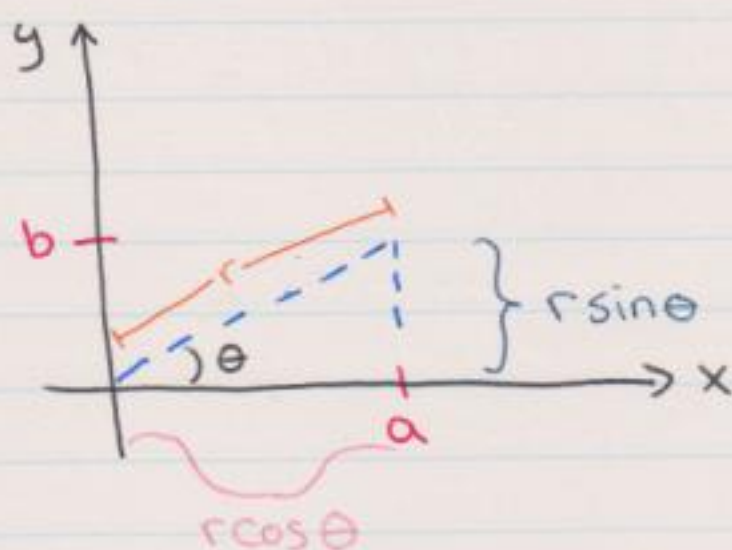 y
b
r
θ
r sinθ
x
a
r cos θ